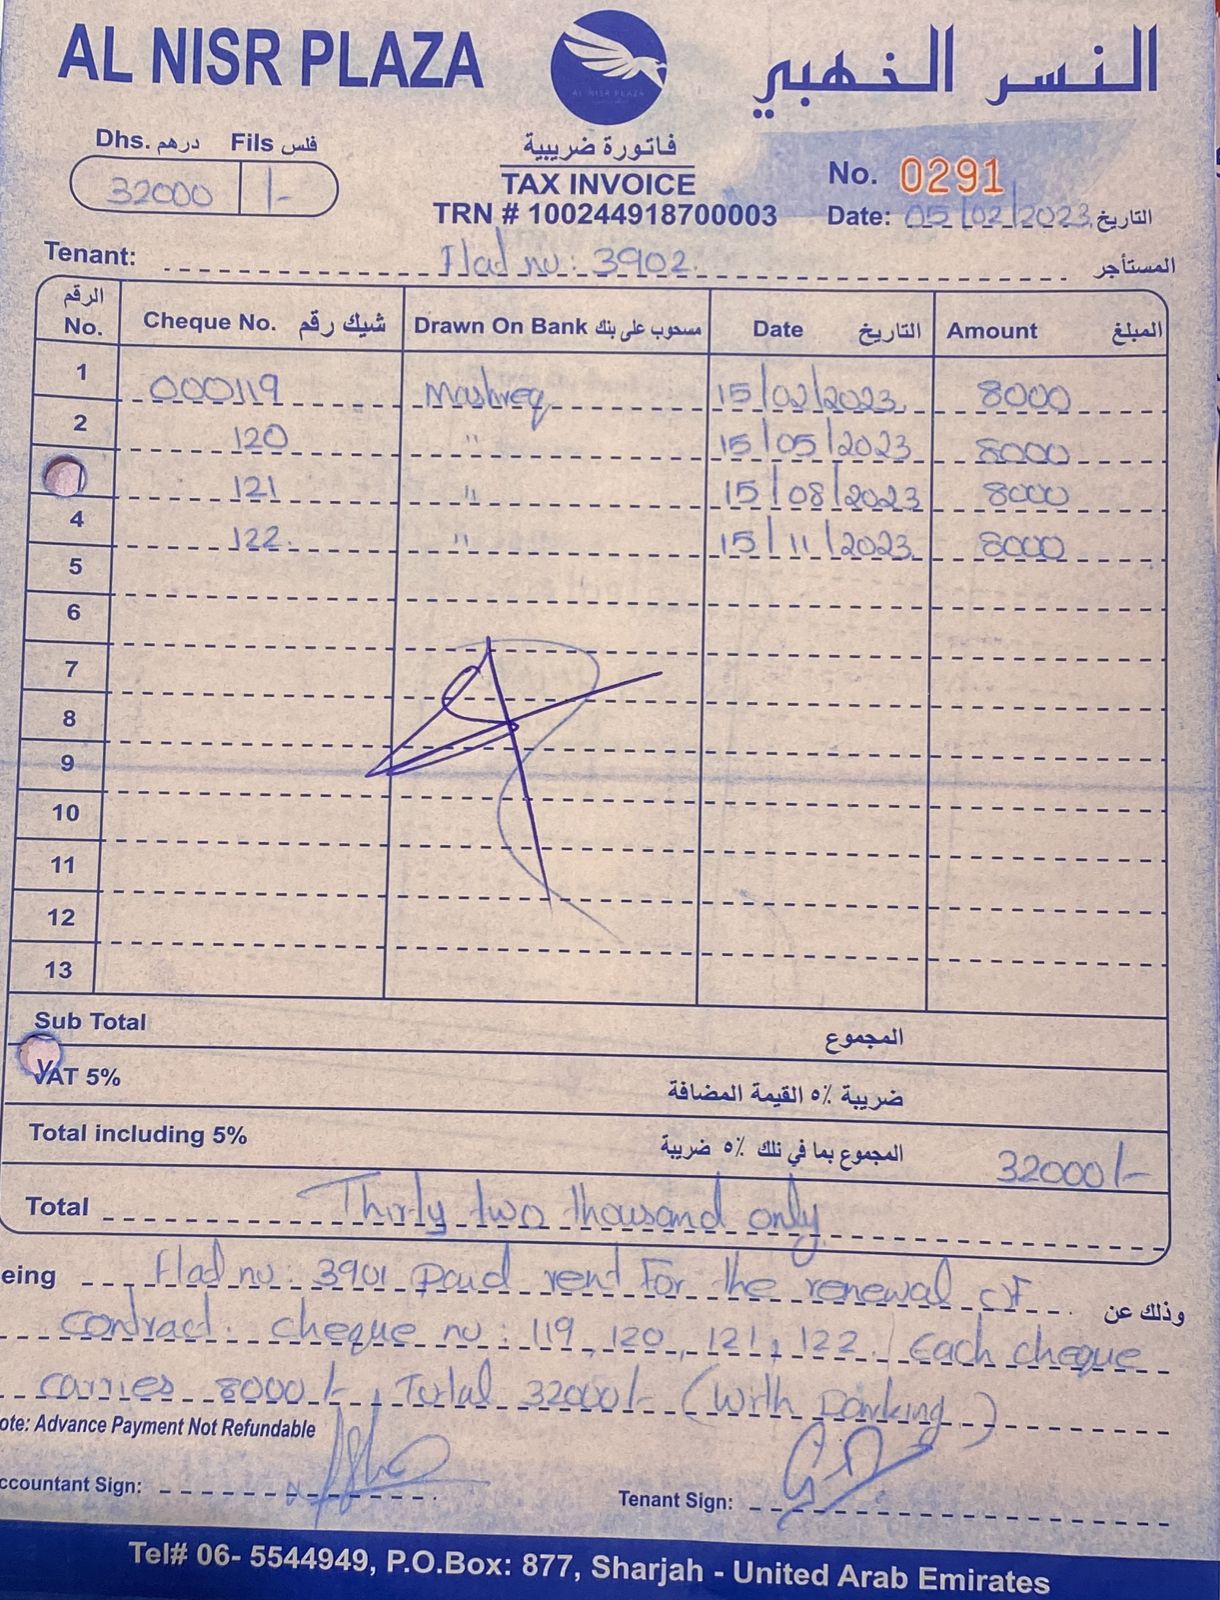 AL NISR PLAZA
AL NISR PLAZA
النسر الذهبي
Dhs. درهم Fils فلس
32000 /-
فاتورة ضريبية
TAX INVOICE
TRN # 100244918700003
No. 0291
Date: 05/02/2023 التاريخ
Tenant: Flat no: 3902 المستأجر
الرقم No. Cheque No. شيك رقم Drawn On Bank مسحوب على بنك Date التاريخ Amount المبلغ
1 000119 Mashreq 15/02/2023 8000
2 120 " 15/05/2023 8000
121 " 15/08/2023 8000
4 122 " 15/11/2023 8000
5
6
7
8
9
10
11
12
13
Sub Total المجموع
VAT 5% ضريبة ٥٪ القيمة المضافة
Total including 5% المجموع بما في ذلك ٥٪ ضريبة 32000/-
Total Thirty two thousand only
eing Flat no: 3901 Paid rent for the renewal of وذلك عن
contract. cheque no: 119, 120, 121, 122. Each cheque
carries 8000/-, Total 32000/- (With Parking)
ote: Advance Payment Not Refundable
ccountant Sign: Tenant Sign:
Tel# 06- 5544949, P.O.Box: 877, Sharjah - United Arab Emirates